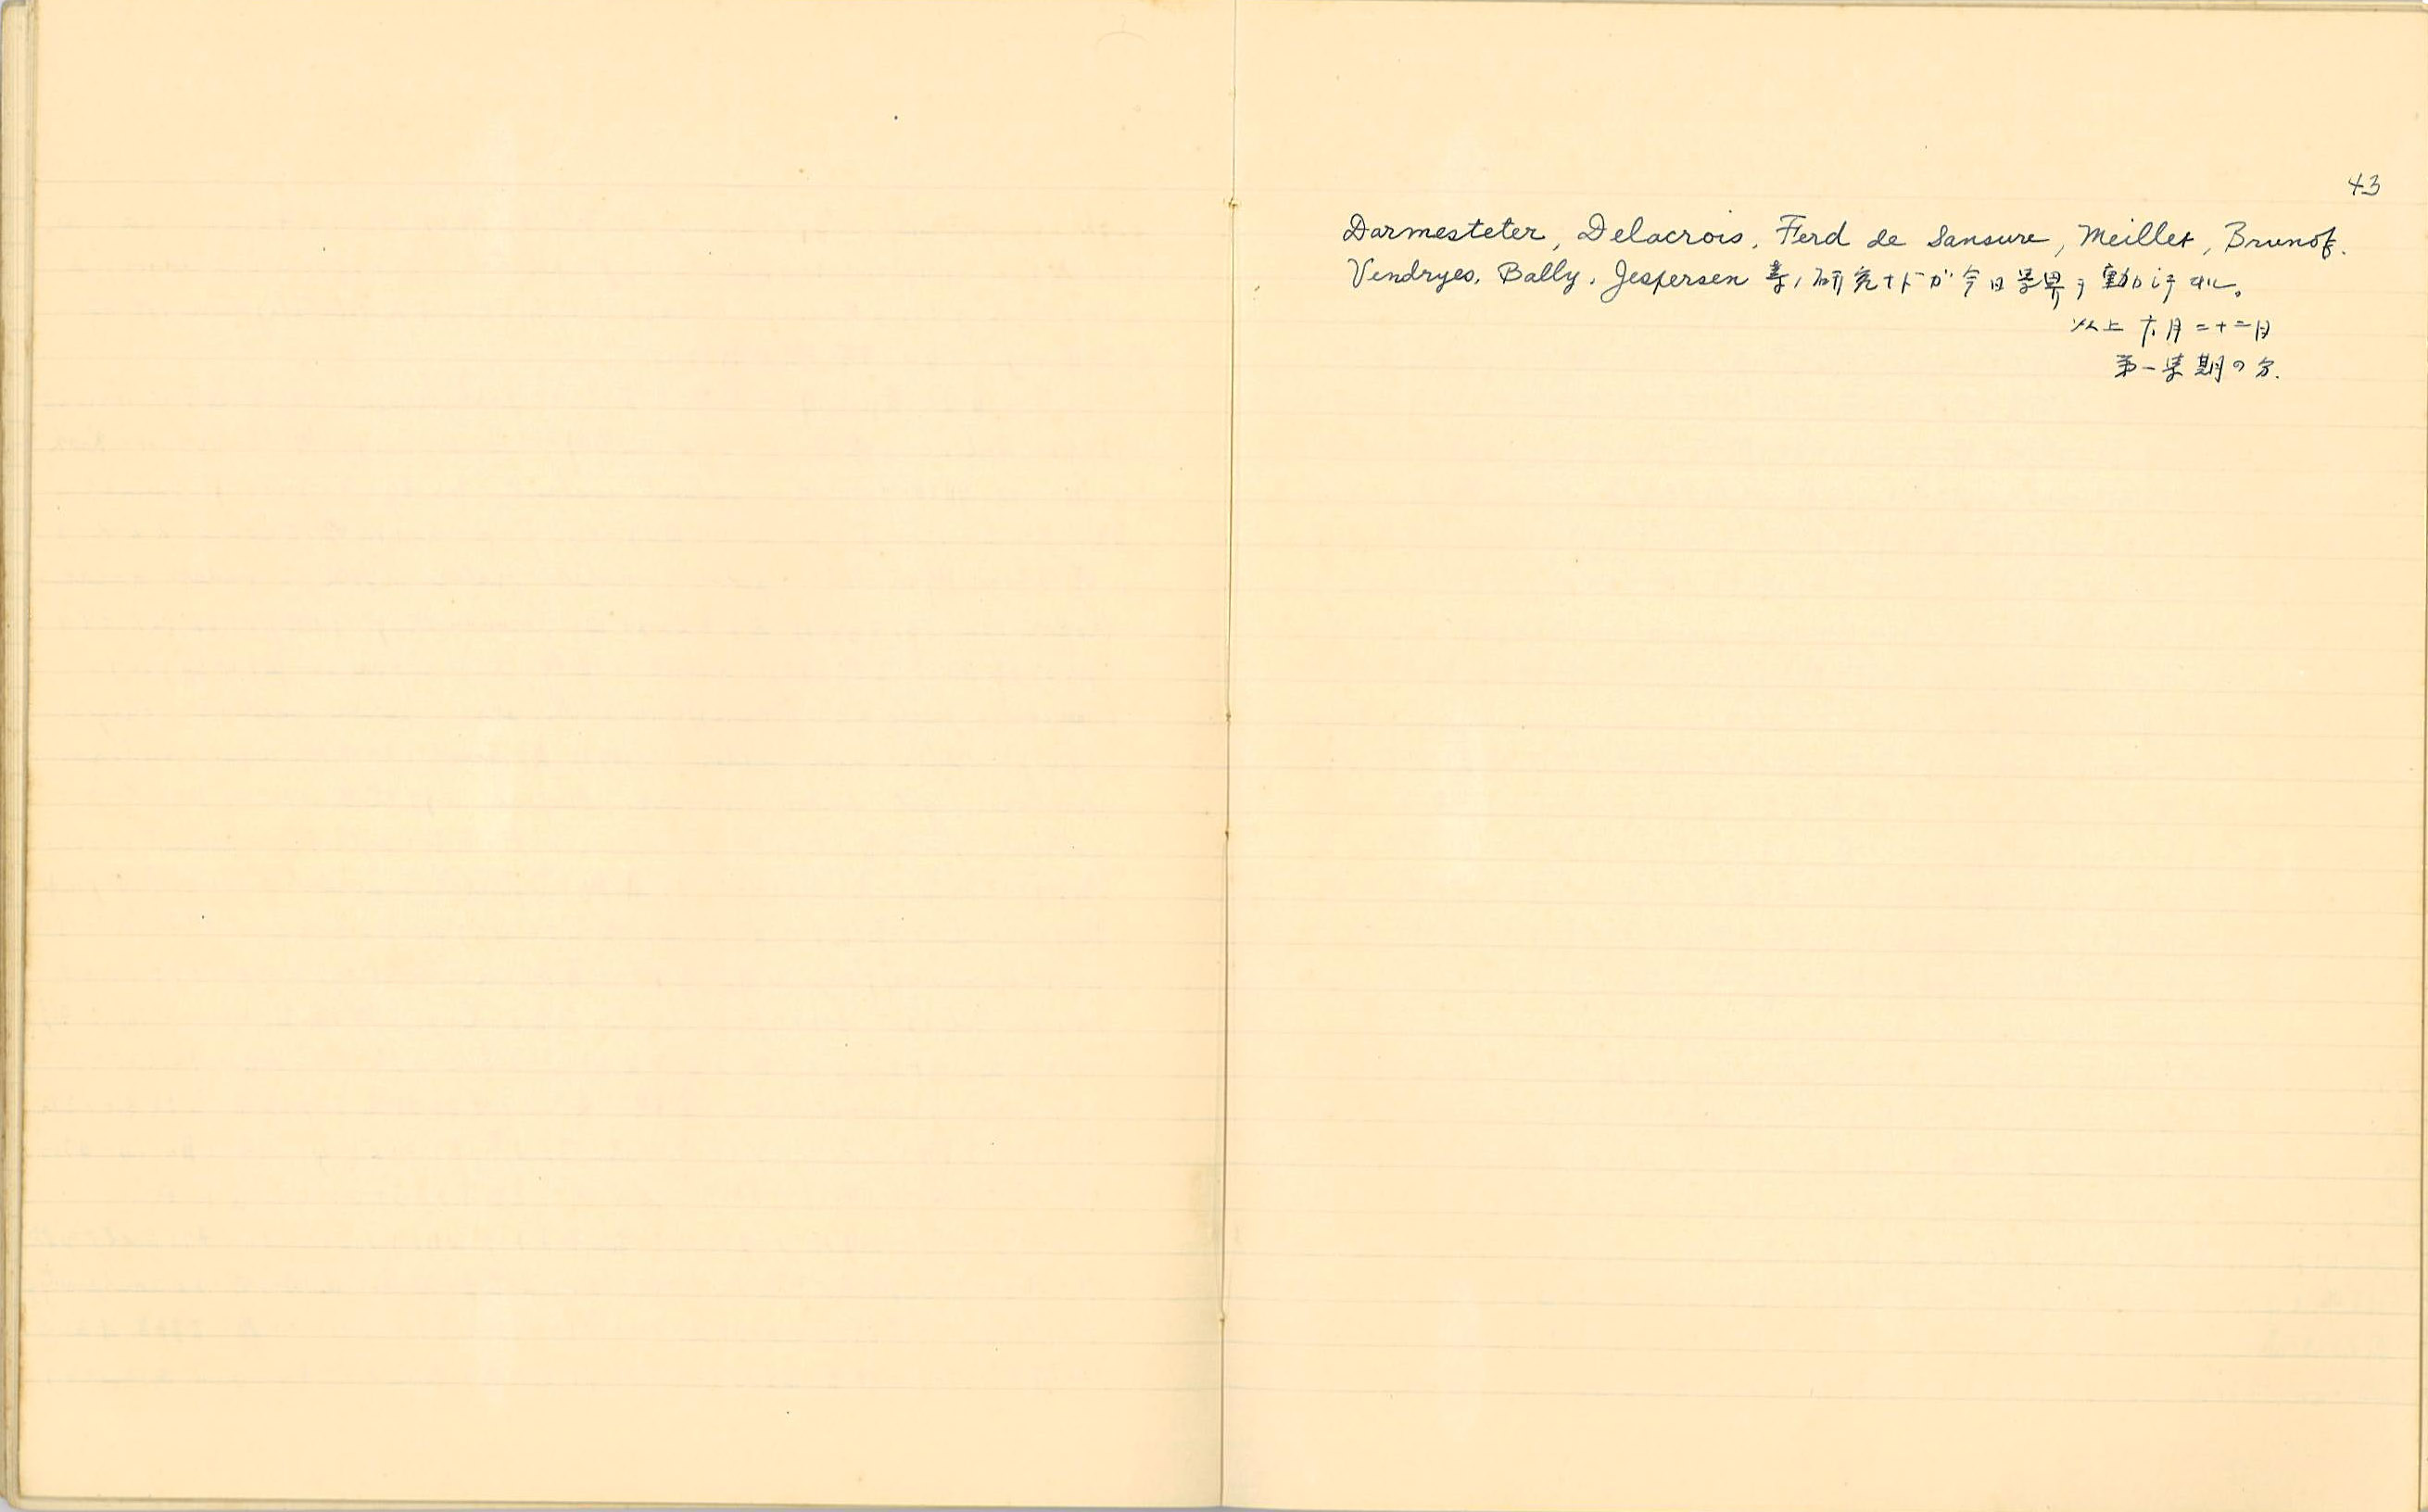 43
Darmesteter, Delacrois, Ferd de Sansure, Meillet, Brunof.
Vendryes, Bally, Jespersen 等ノ研究ナドガ今日学界ヲ動かしテヰル。
以上 六月二十二日
第一学期の分.